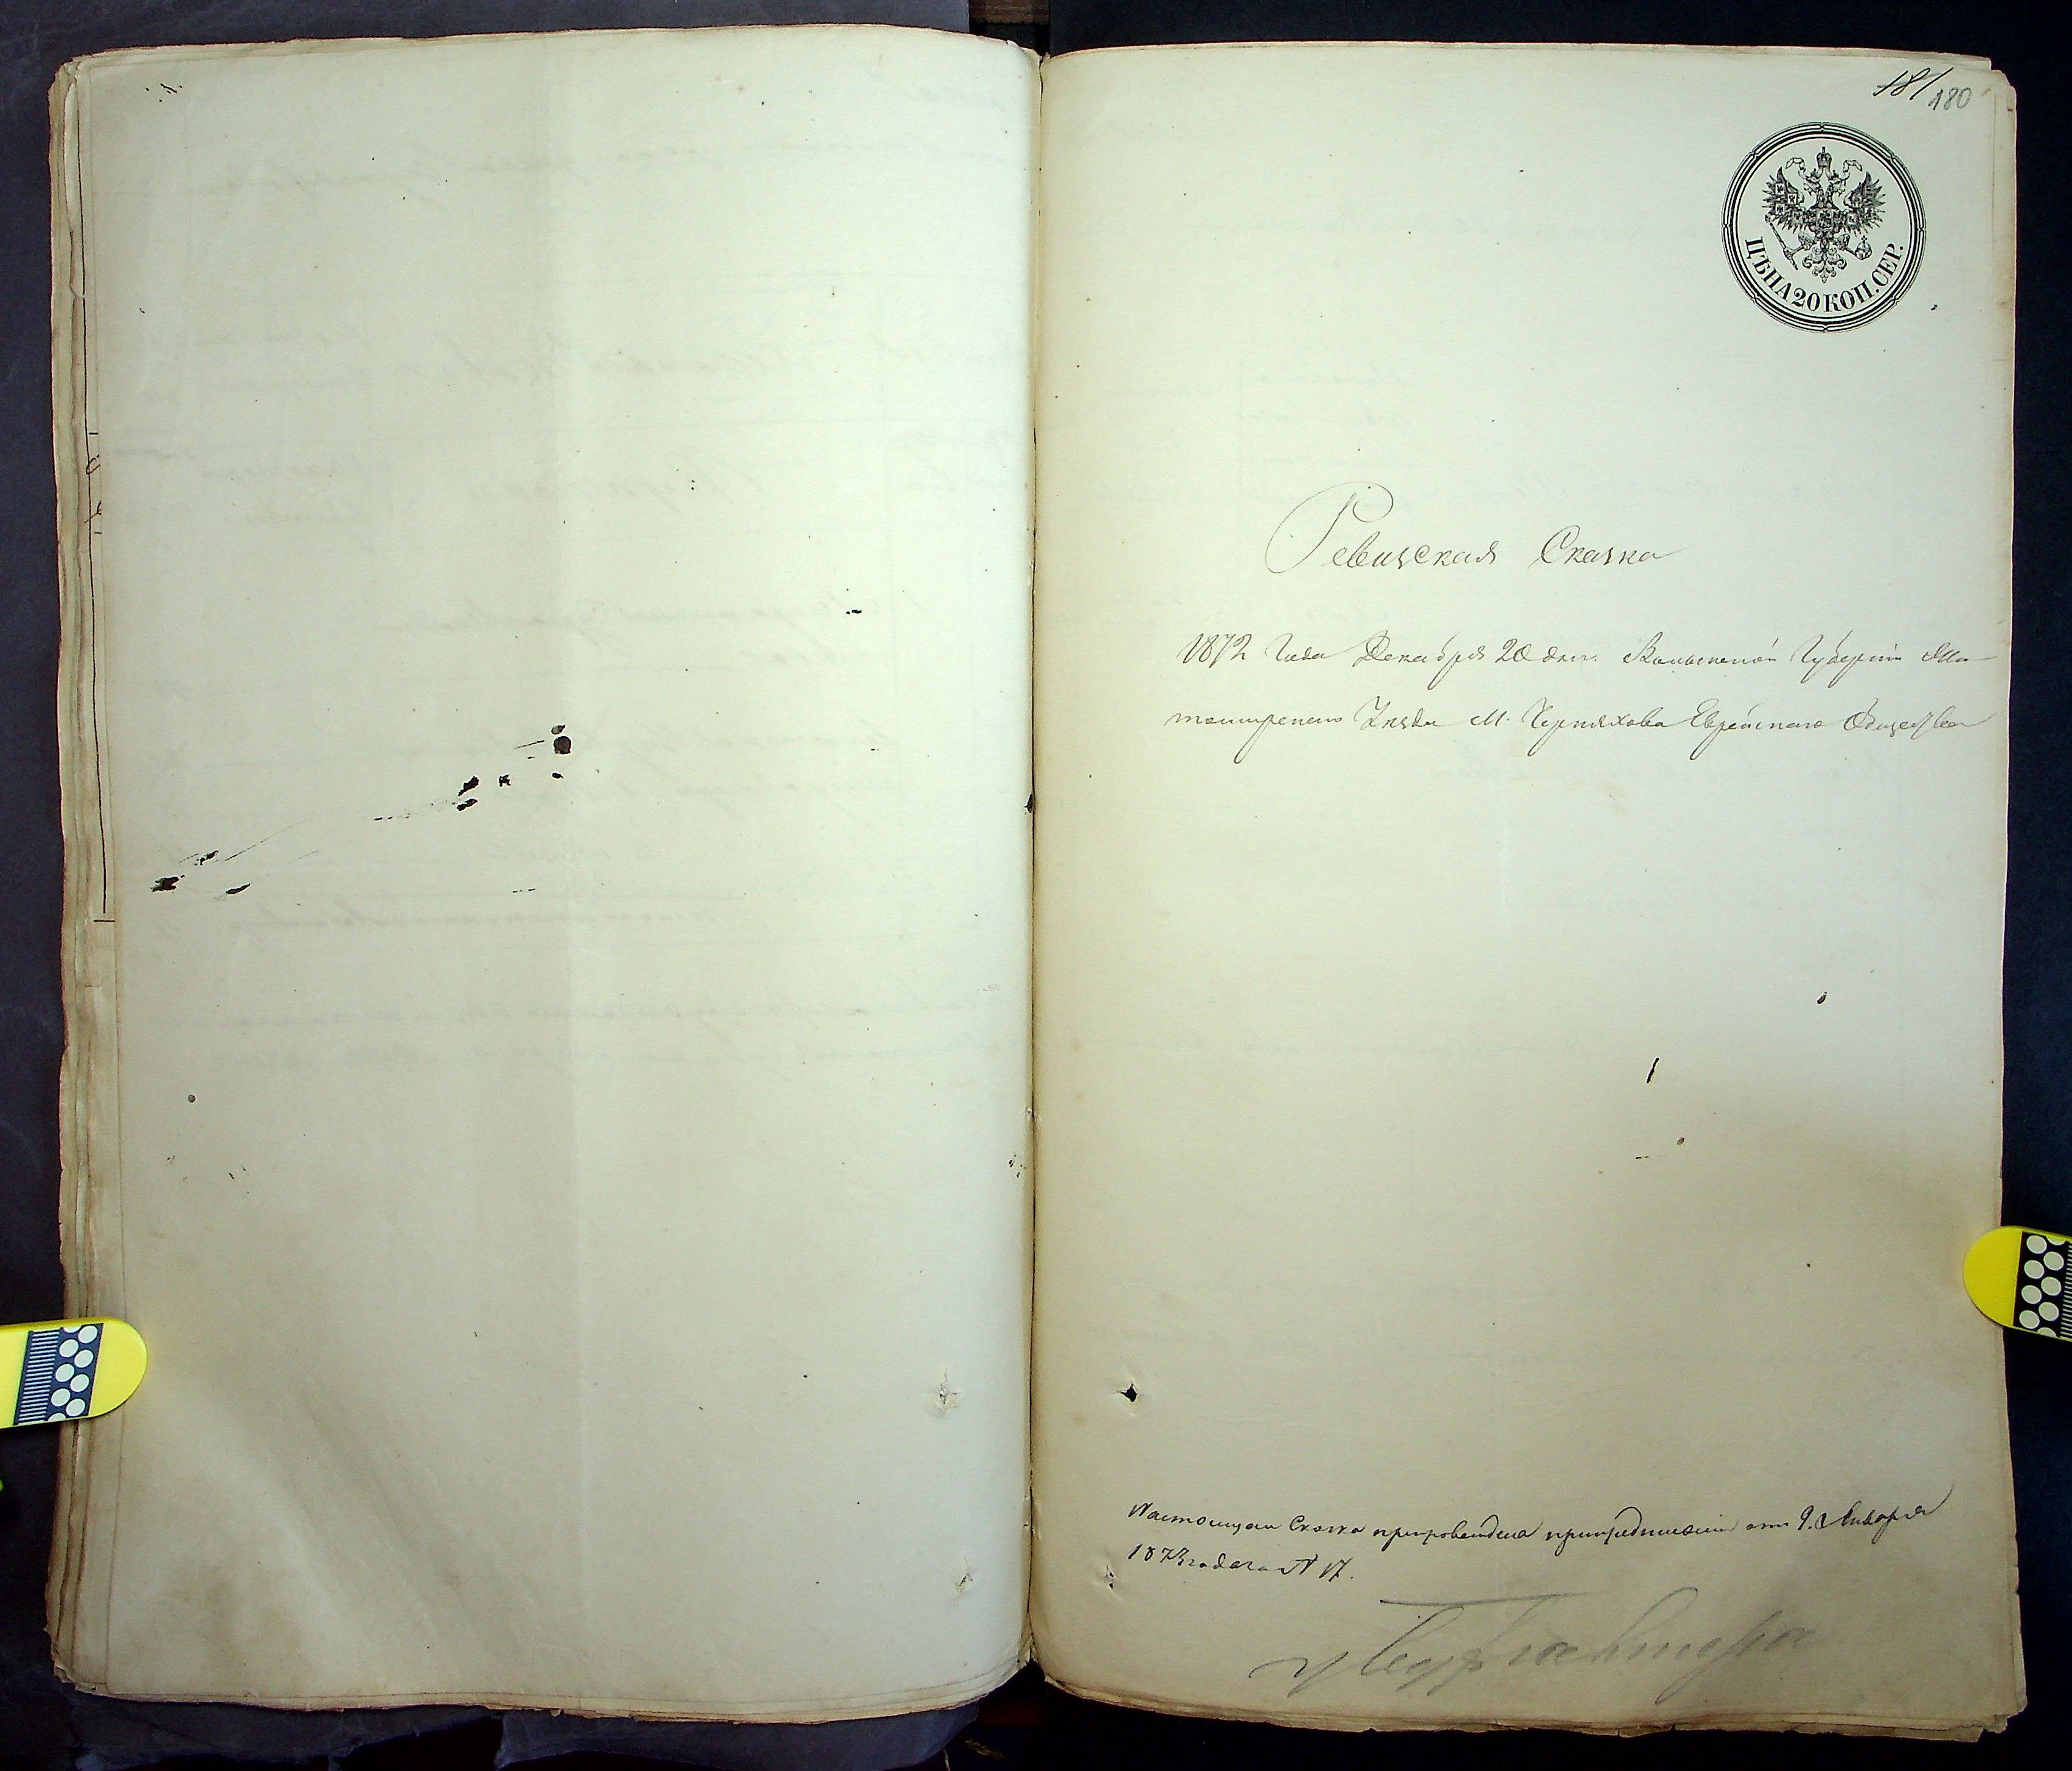 181
180
ЦѢНА 20 КОП. СЕР.
Ревизская Сказка
1872 Года Декабря 20 дня. Волынской Губерніи Жи-
томирскаго Уезда М. Черняхова Еврейскаго Общества
Настоящая Сказка препровождена при отъ 9. Января
1873 года за № 17.